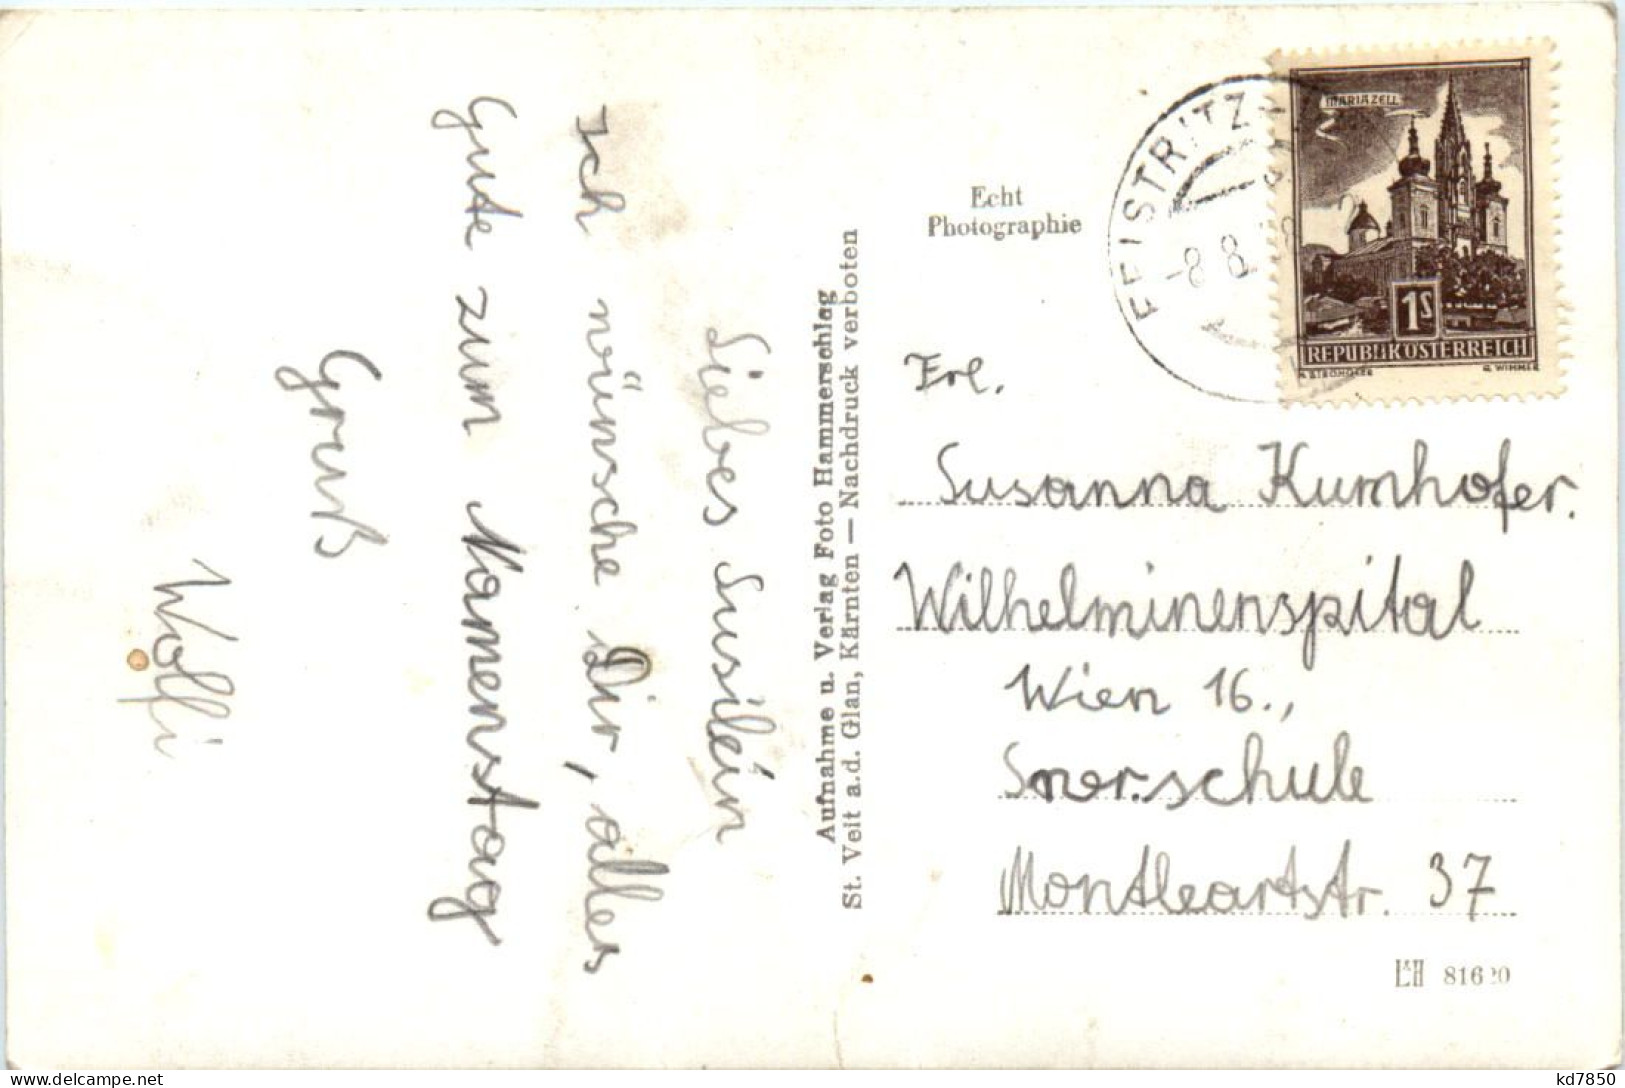 Liebes Susilein
Ich wünsche Dir, alles
Gute zum Namenstag
Gruß
Wolfi
Aufnahme u. Verlag Foto Hammerschlag
St. Veit a.d. Glan, Kärnten — Nachdruck verboten
Echt
Photographie
FEISTRITZ
-8.8.
MARIAZELL
1S
REPUBLIK ÖSTERREICH
G. WIMMER
Frl.
Susanna Kumhofer.
Wilhelminenspital
Wien 16.,
Montleartstr. 37
kd7850